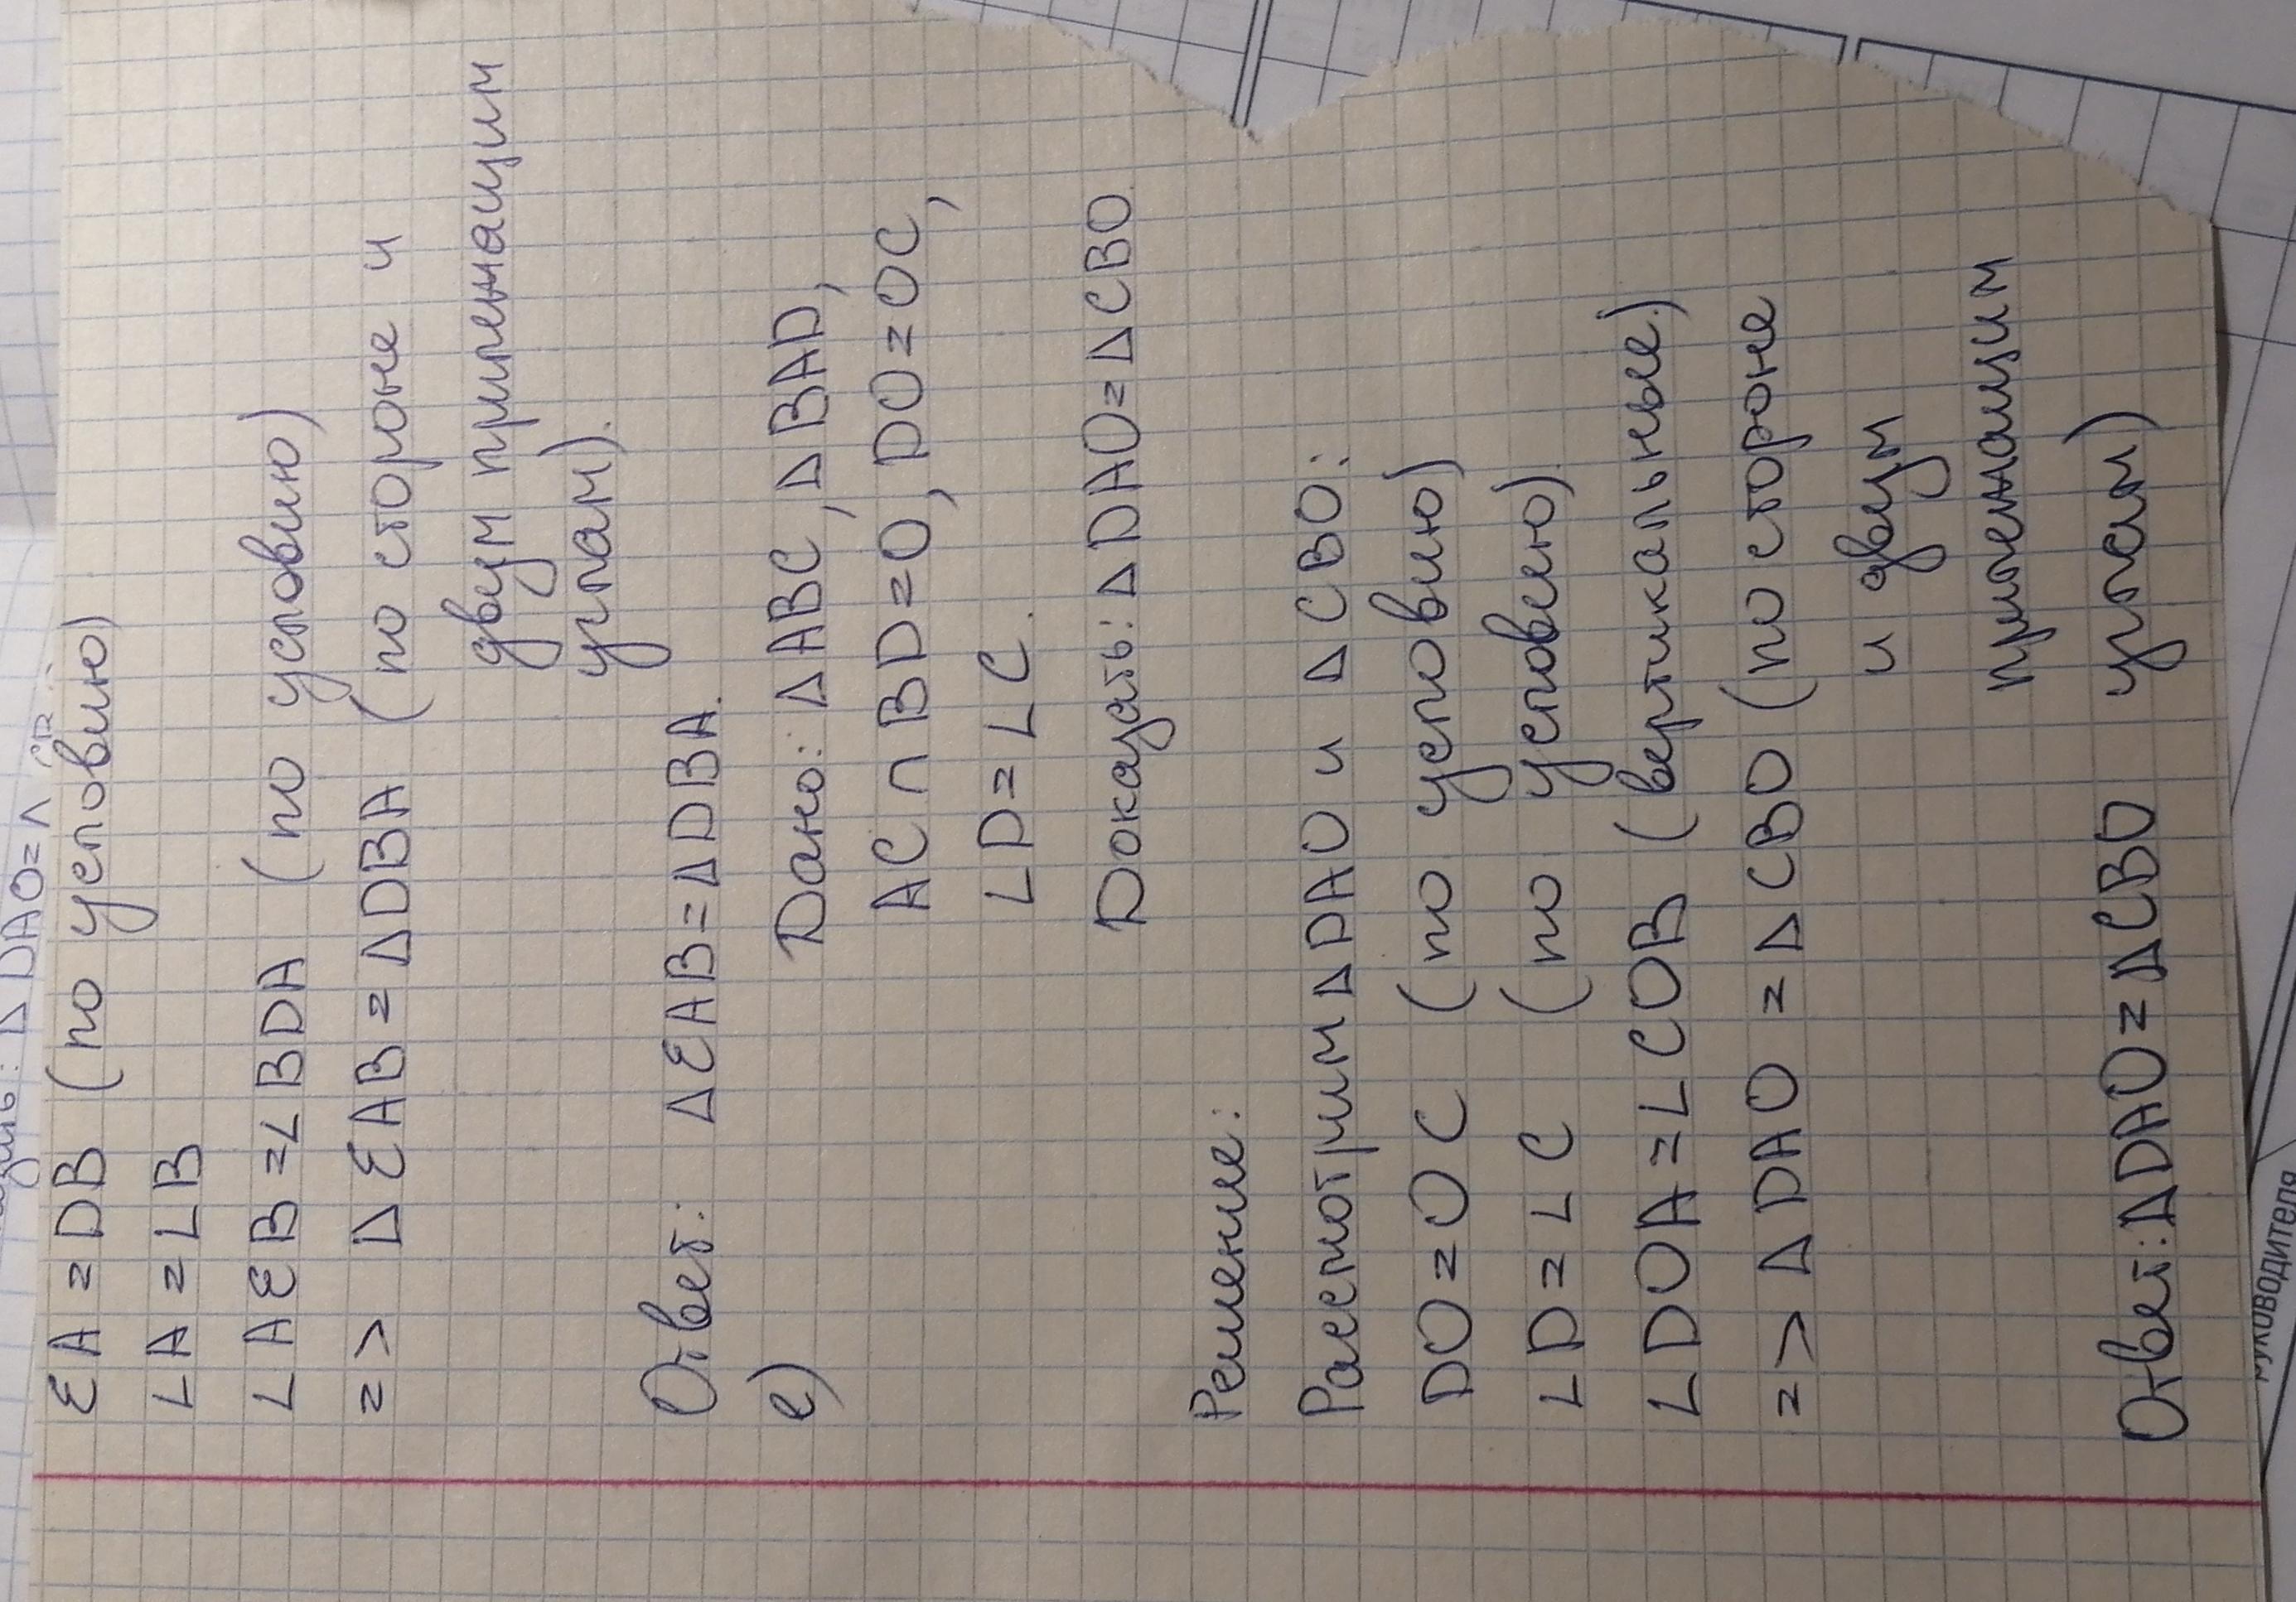 EA = DB (по условию)
∠A = ∠B
∠AEB = ∠BDA (по условию)
=> ΔEAB = ΔDBA (по стороне и
двум прилежащим
углам).
Ответ: ΔEAB = ΔDBA.
е) Дано: ΔABC, ΔBAD,
AC ∩ BD = O, DO = OC,
∠D = ∠C.
Доказать: ΔDAO = ΔCBO.
Решение:
Рассмотрим ΔDAO и ΔCBO:
DO = OC (по условию)
∠D = ∠C (по условию)
∠DOA = ∠COB (вертикальные)
=> ΔDAO = ΔCBO (по стороне
и двум
прилежащим
углам)
Ответ: ΔDAO = ΔCBO
руководителя